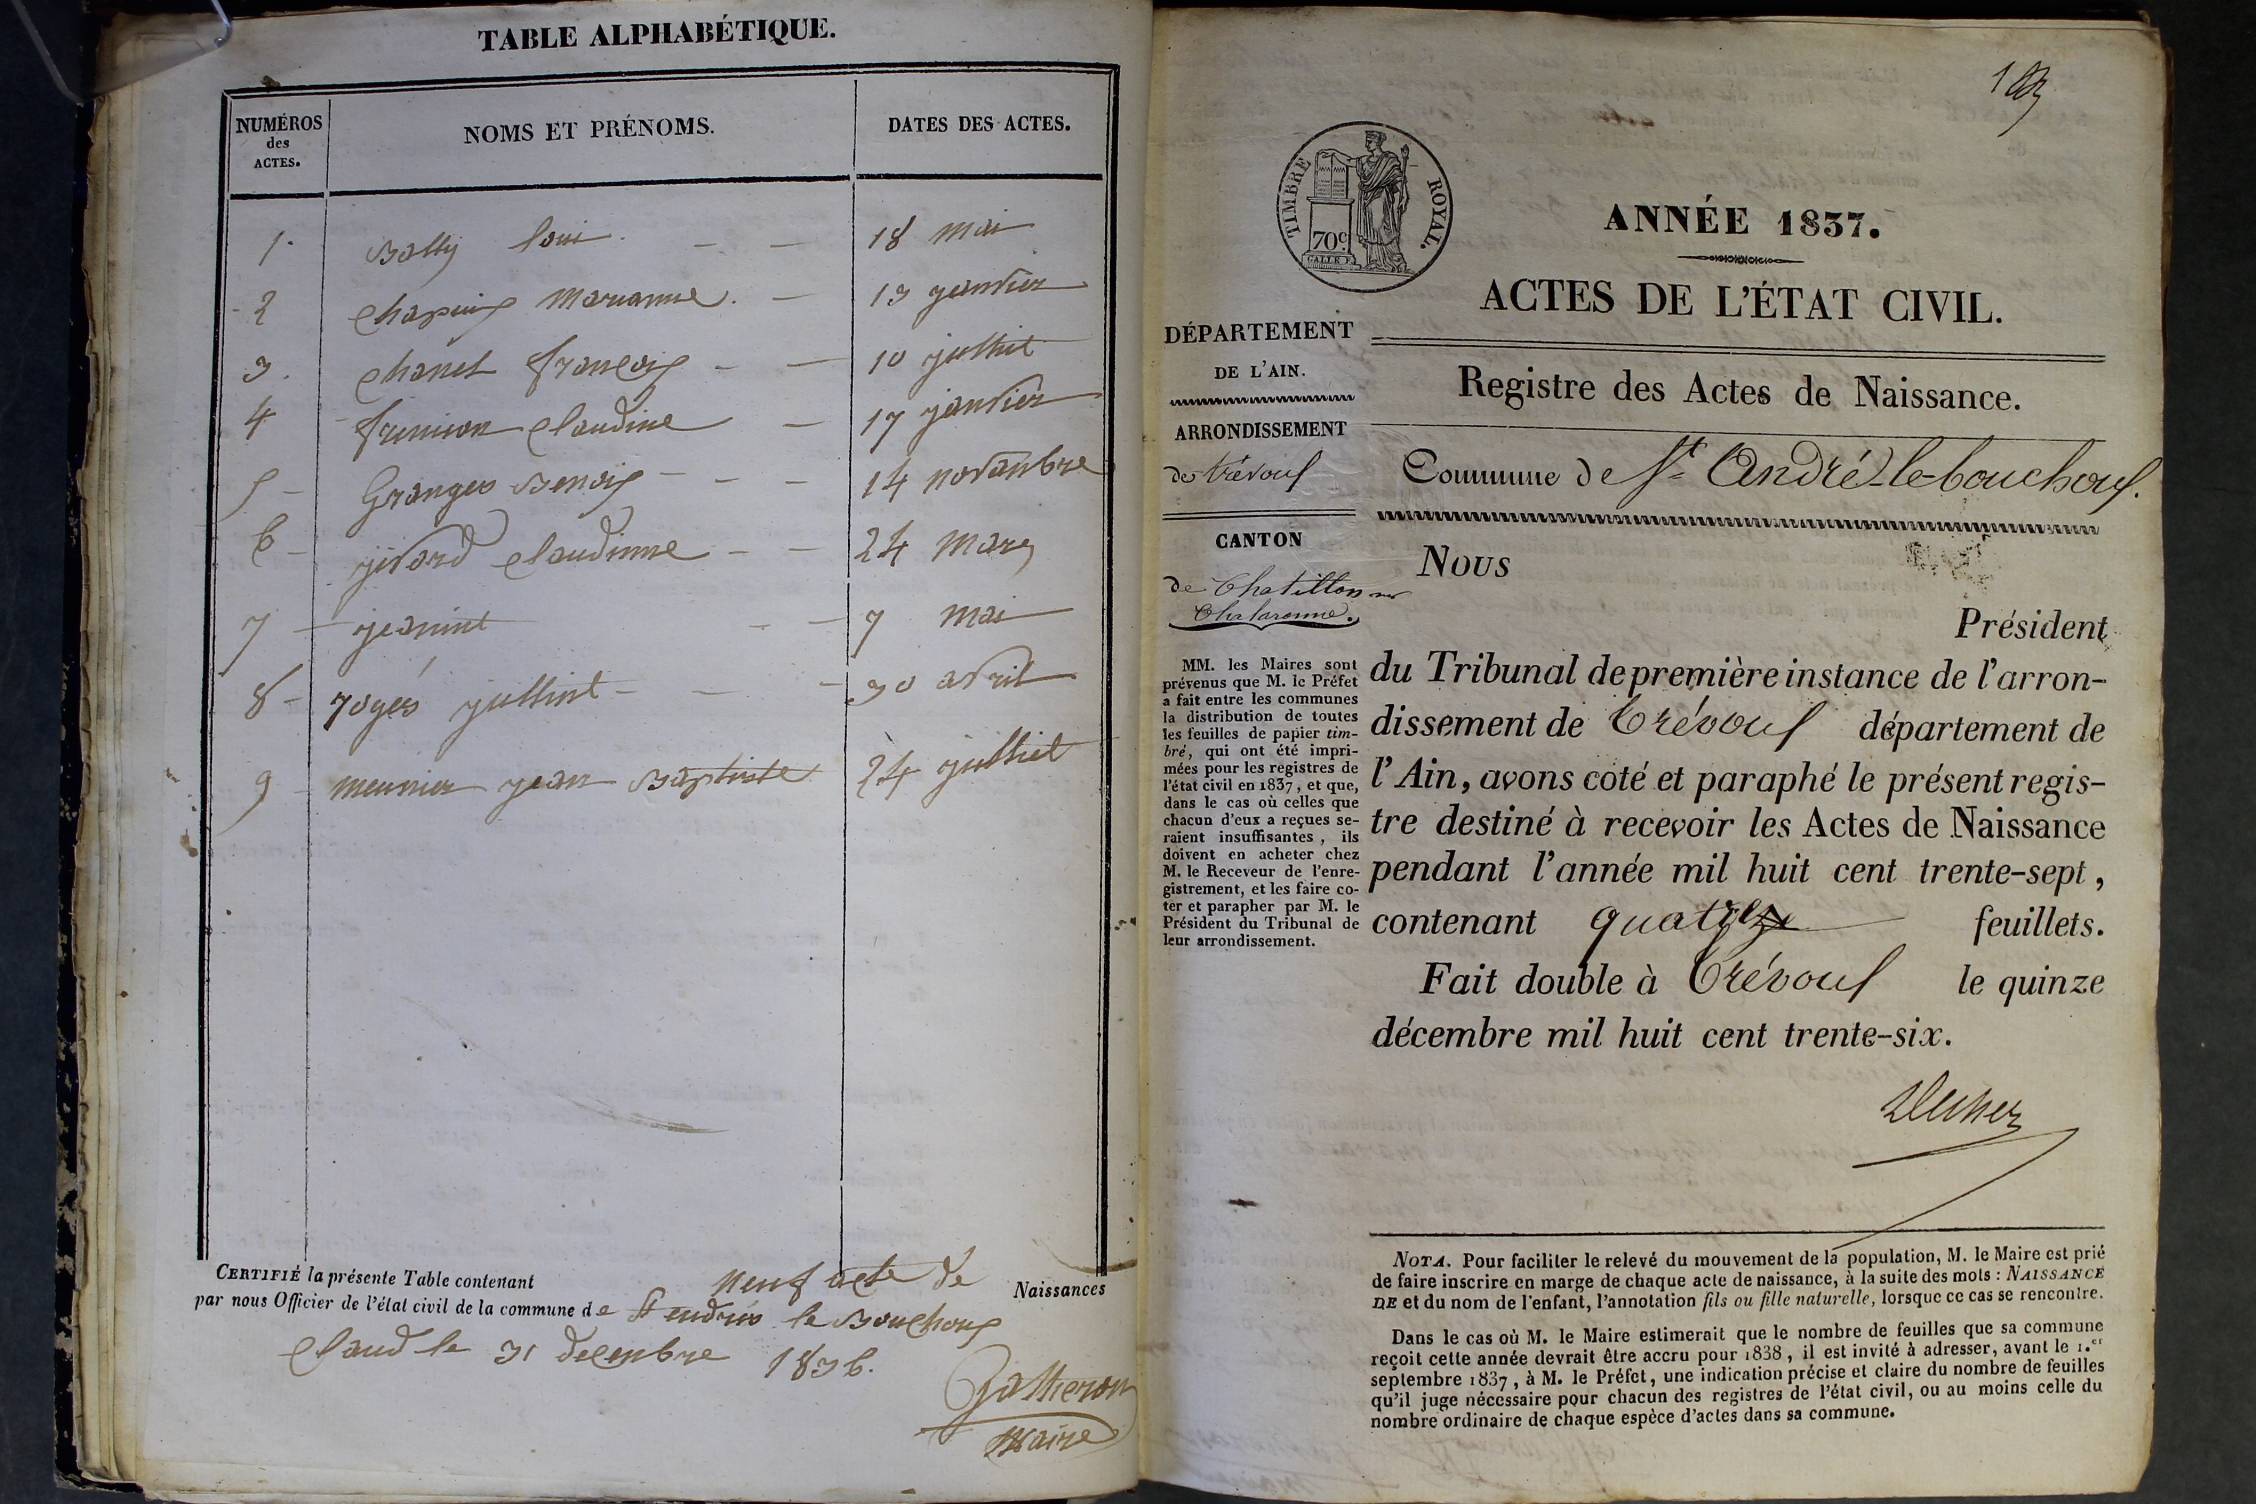 TABLE ALPHABÉTIQUE.
NUMÉROS
des
ACTES.
NOMS ET PRÉNOMS.
DATES DES ACTES.
1. Bally loui 18 mai
2 Chapuis marianne 13 janvier
3. Chanel françois 10 julliet
4 frimion Claudine 17 janvier
5 Granges Benois 14 novambre
6 jivard Claudinne 24 mars
7 jeanint 7 mai
8 jogés julliint 30 avril
9 meunier jean Baptiste 24 julliet
CERTIFIÉ la présente Table contenant neuf acte de Naissances
par nous Officier de l'état civil de la commune de St andrés le Bouchoux
Claud le 31 decembre 1836.
Maire
ANNÉE 1837.
TIMBRE ROYAL.
70c
ACTES DE L'ÉTAT CIVIL.
DÉPARTEMENT
DE L'AIN.
ARRONDISSEMENT
de trévoux
CANTON
de Chatillon sur
Chalaronne.
MM. les Maires sont
prévenus que M. le Préfet
a fait entre les communes
la distribution de toutes
les feuilles de papier tim-
bré, qui ont été impri-
mées pour les registres de
l'état civil en 1837, et que,
dans le cas où celles que
chacun d'eux a reçues se-
raient insuffisantes, ils
doivent en acheter chez
M. le Receveur de l'enre-
gistrement, et les faire co-
ter et parapher par M. le
Président du Tribunal de
leur arrondissement.
Registre des Actes de Naissance.
Commune de St André-le-bouchoux.
Nous
Président
du Tribunal de première instance de l'arron-
dissement de Trévoux département de
l'Ain, avons coté et paraphé le présent regis-
tre destiné à recevoir les Actes de Naissance
pendant l'année mil huit cent trente-sept,
contenant quatre feuillets.
Fait double à Trévoux le quinze
décembre mil huit cent trente-six.
NOTA. Pour faciliter le relevé du mouvement de la population, M. le Maire est prié
de faire inscrire en marge de chaque acte de naissance, à la suite des mots : NAISSANCE
DE et du nom de l'enfant, l'annotation fils ou fille naturelle, lorsque ce cas se rencontre.
Dans le cas où M. le Maire estimerait que le nombre de feuilles que sa commune
reçoit cette année devrait être accru pour 1838, il est invité à adresser, avant le 1.er
septembre 1837, à M. le Préfet, une indication précise et claire du nombre de feuilles
qu'il juge nécessaire pour chacun des registres de l'état civil, ou au moins celle du
nombre ordinaire de chaque espèce d'actes dans sa commune.